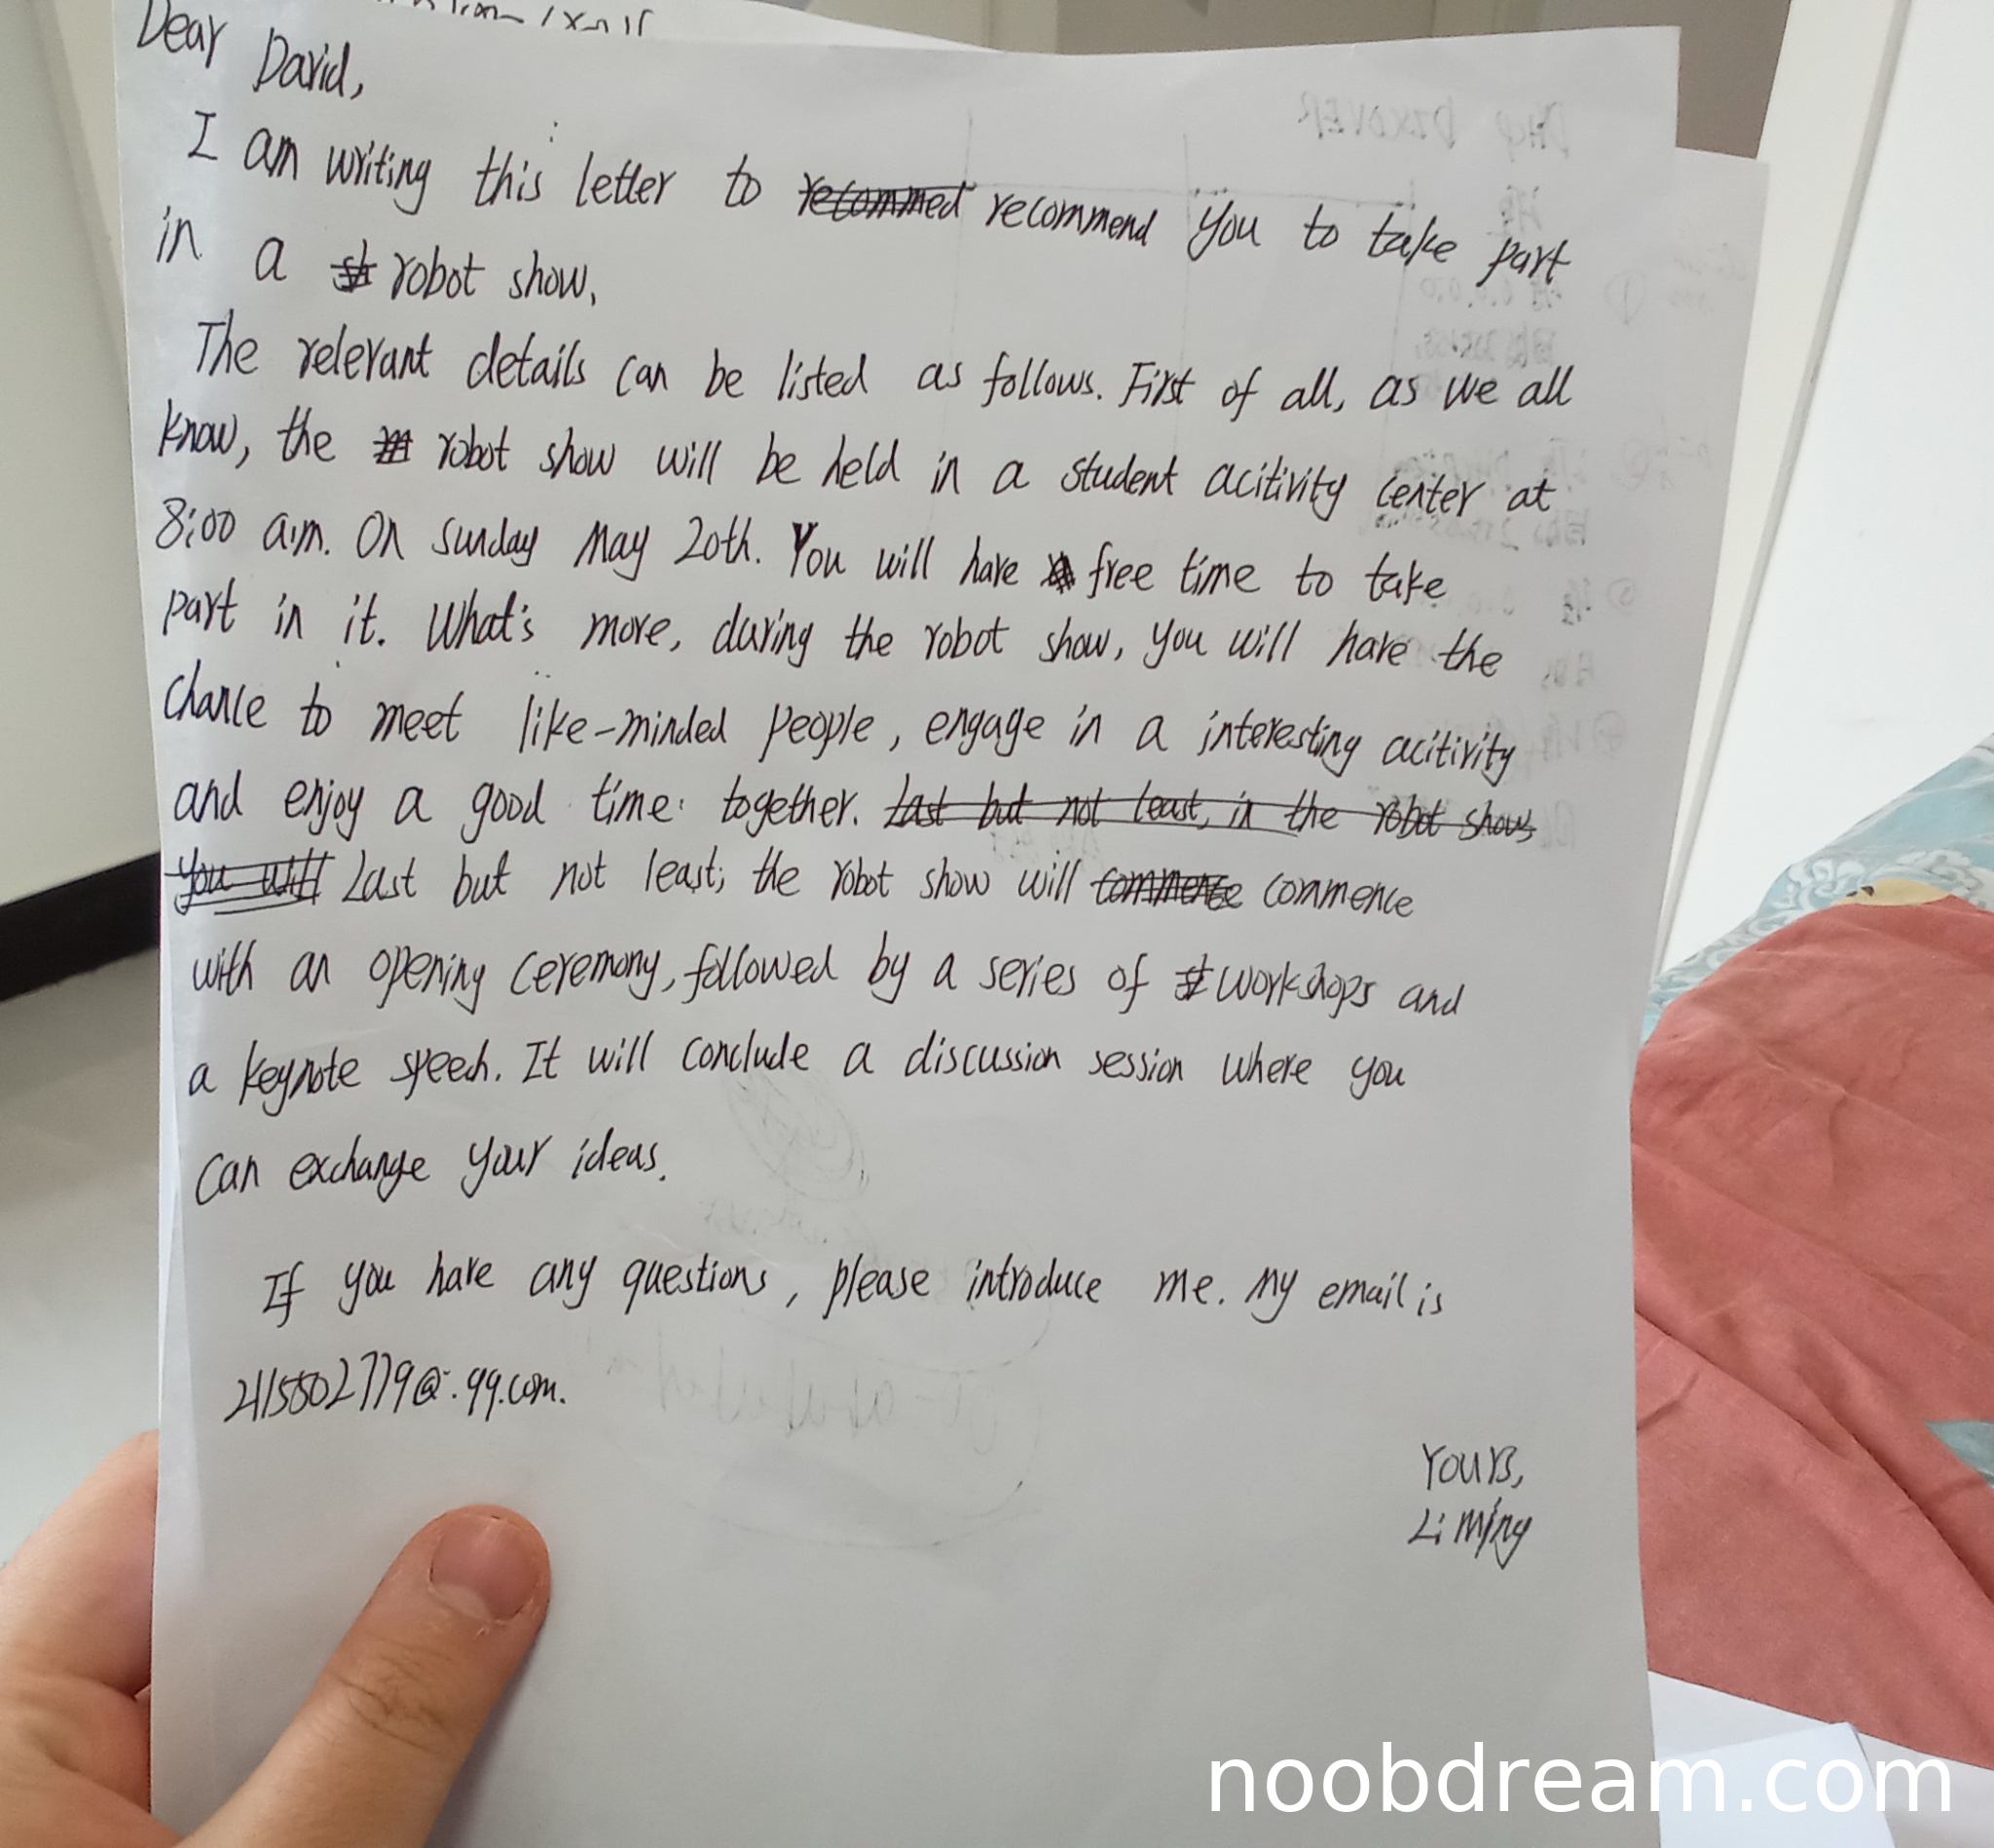 Dear David,
I am writing this letter to recommed recommend you to take part
in a sh robot show.
The relevant details can be listed as follows. First of all, as we all
know, the robot show will be held in a student acitivity center at
8:00 a.m. On Sunday May 20th. You will have free time to take
part in it. What's more, during the robot show, you will have the
chance to meet like-minded people, engage in a interesting acitivity
and enjoy a good time together. Last but not least, in the robot show,
you will Last but not least, the robot show will commence commence
with an opening ceremony, followed by a series of workshops and
a keynote speech. It will conclude a discussion session where you
can exchange your ideas.
If you have any questions, please introduce me. My email is
2115502779@.qq.com.
Yours,
Li Ming
DHCP DISCOVER
noobdream.com